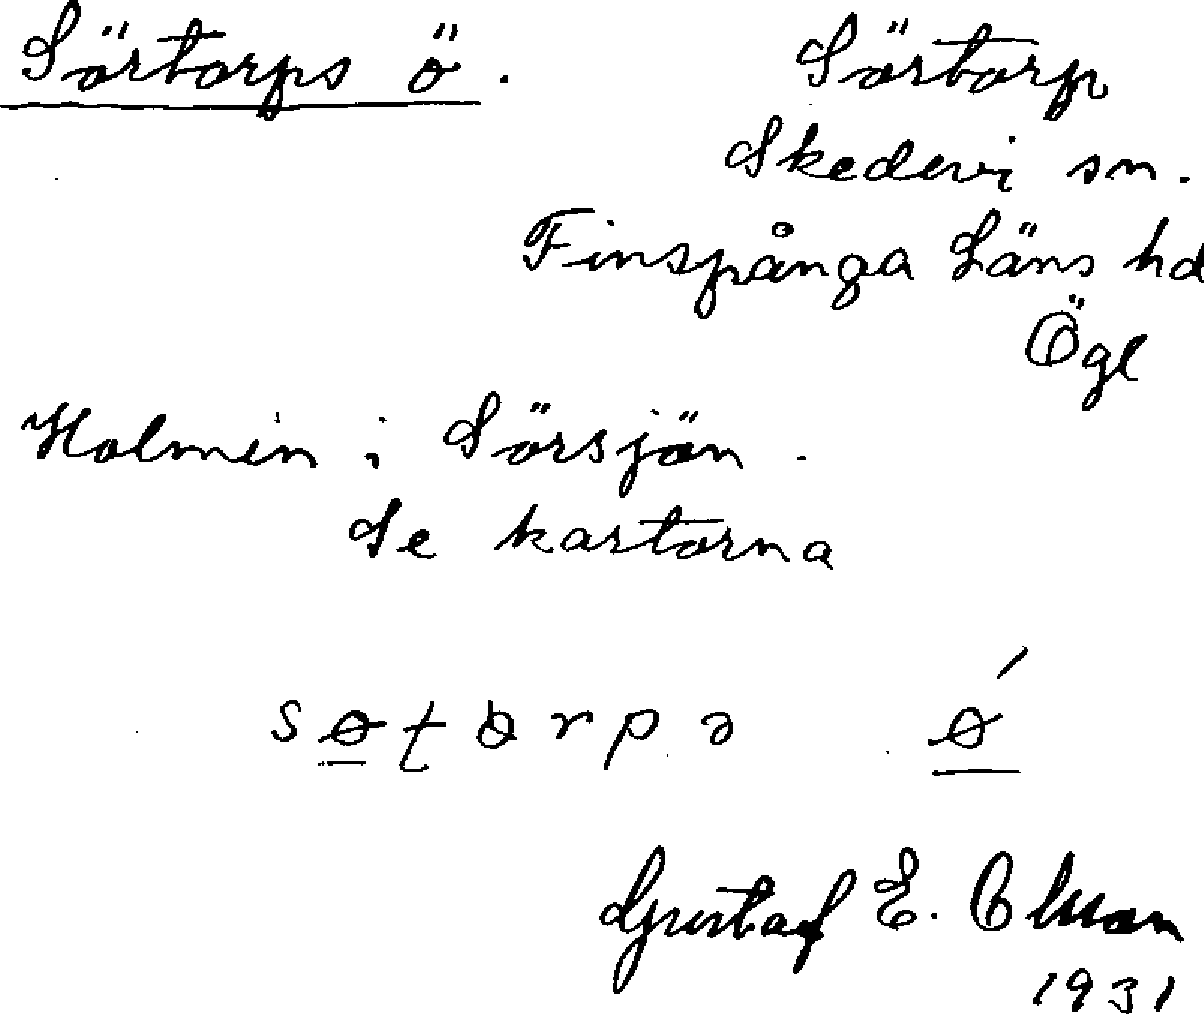 Sörtorps ö. Sörtorp
Skedevi sn.
Finspånga Läns hd
Ögl
Holmen i Sörsjön.
Se kartorna
Gustaf E. Olsson
1931